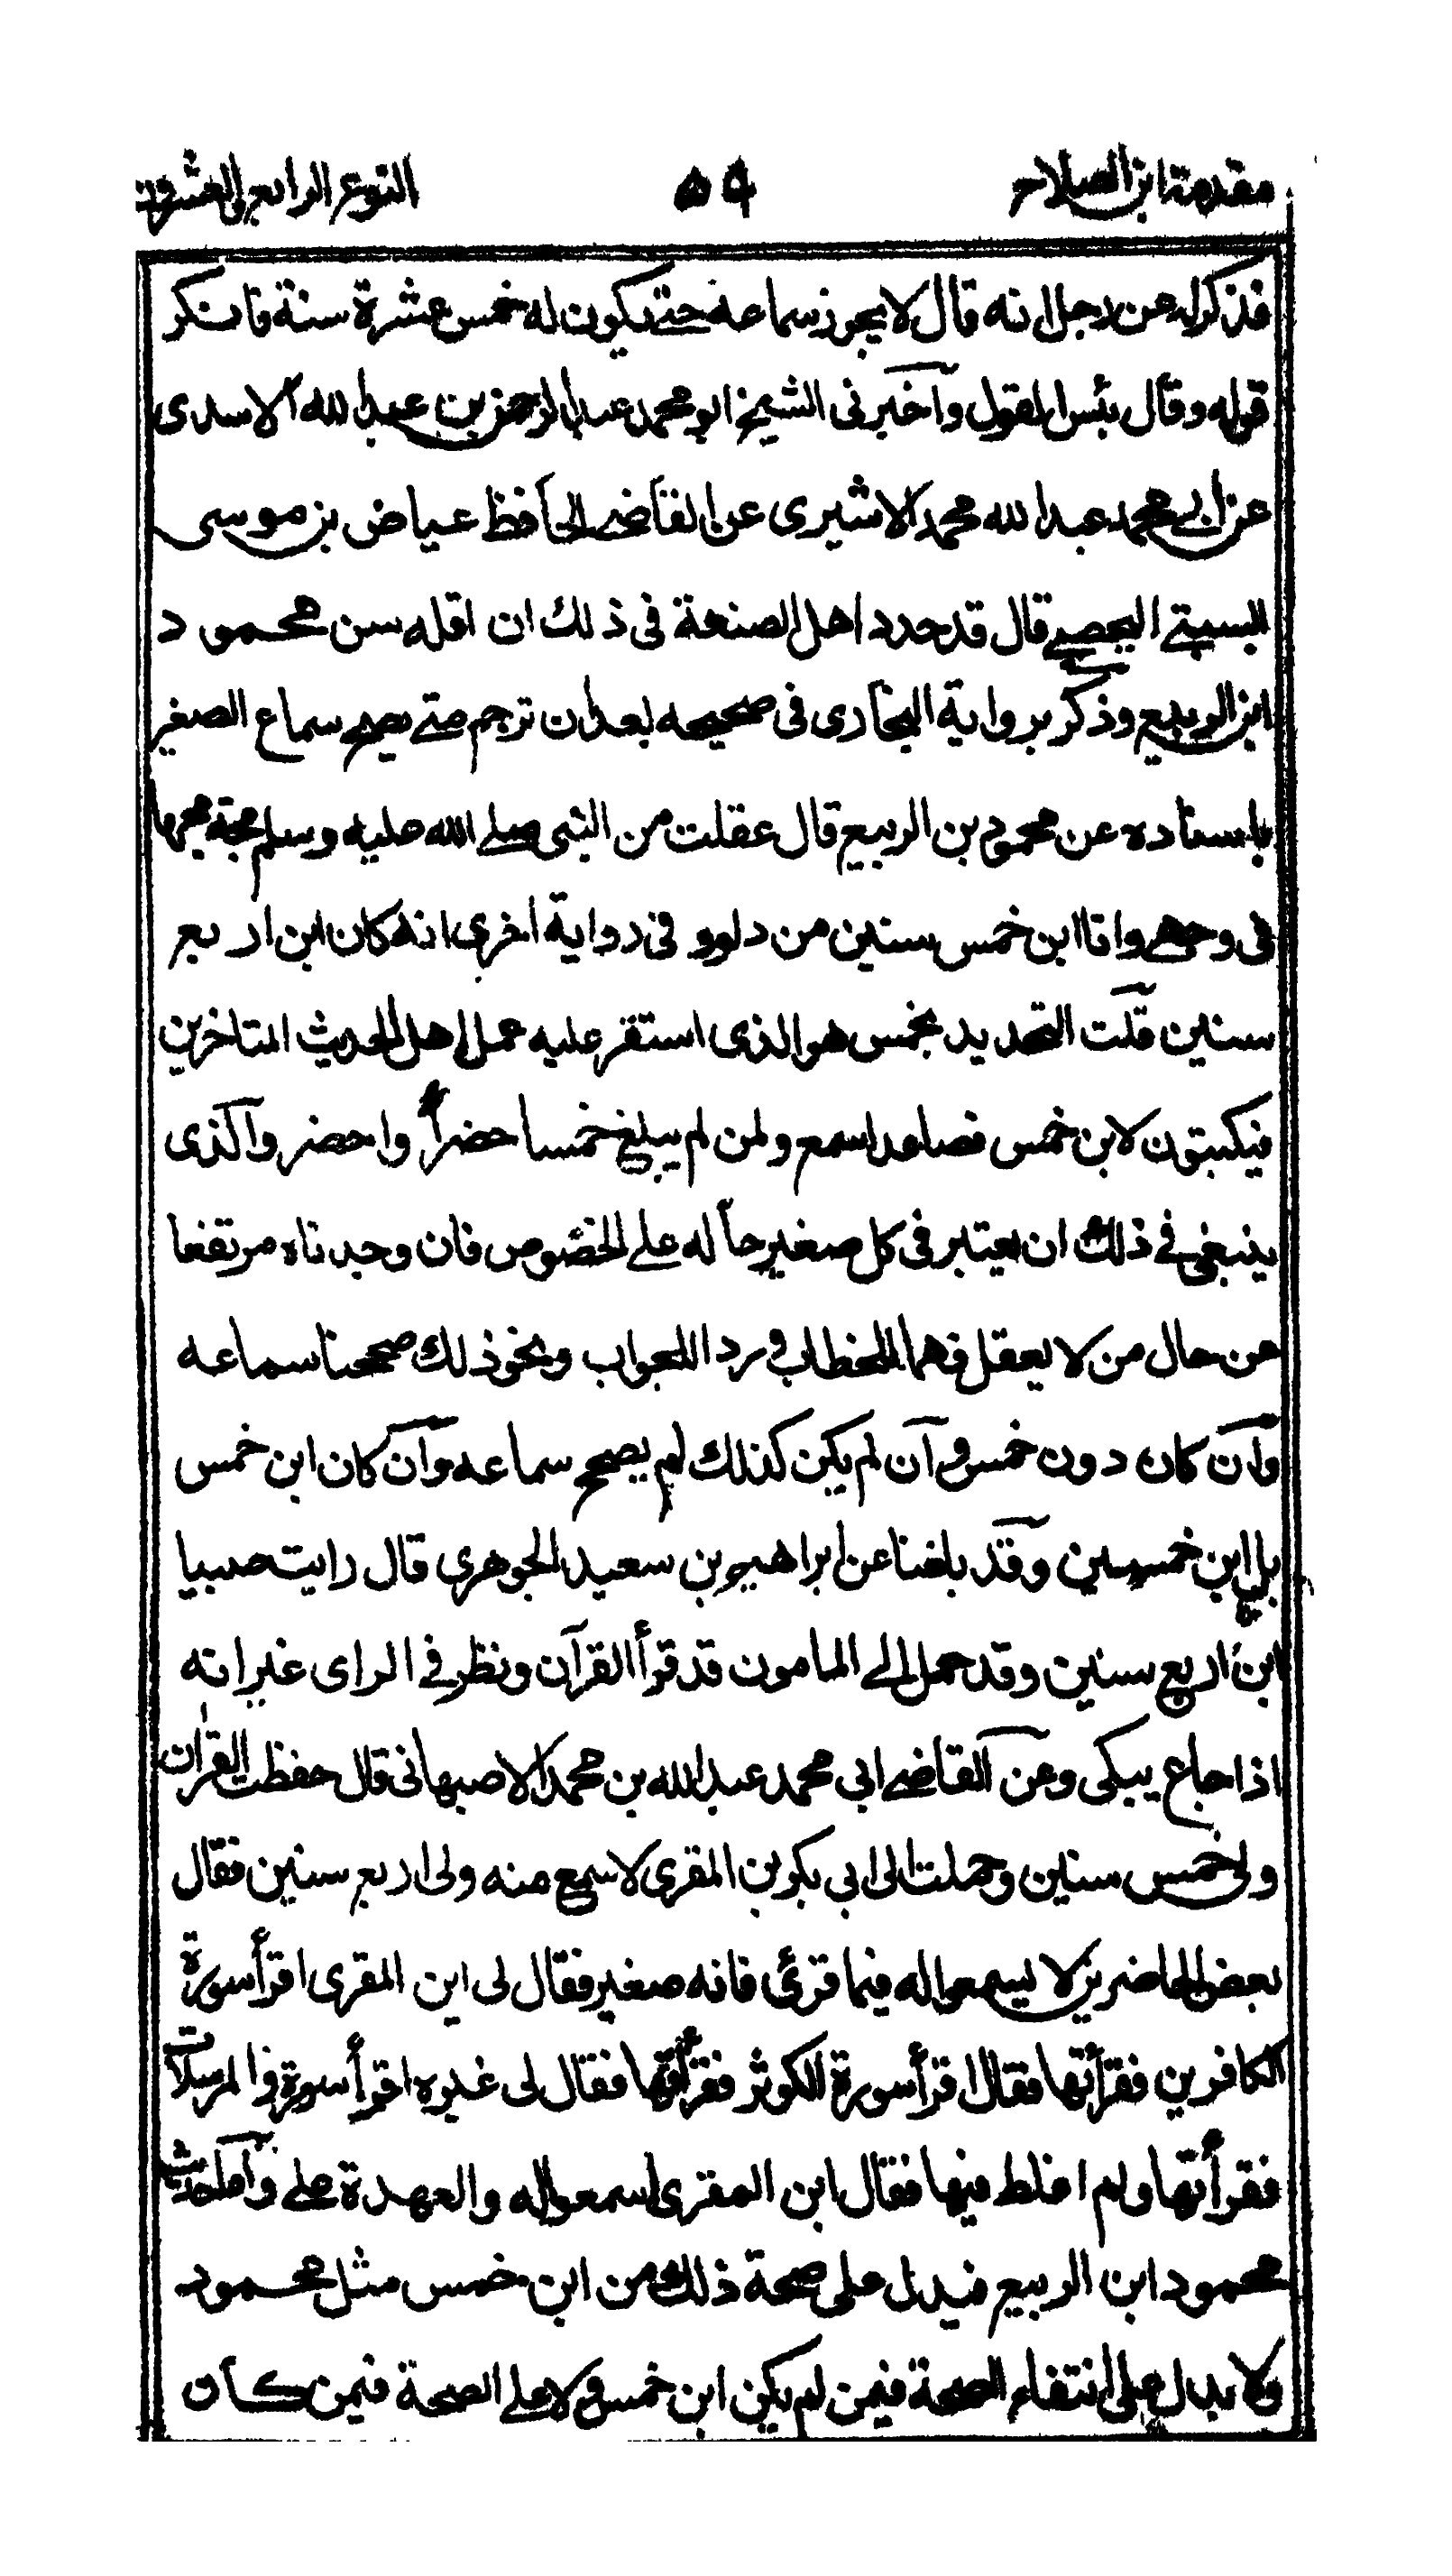 مقدمة ابن الصلاح ٥٩ النوع الرابع والعشرون
فذكر له عن رجل انه قال لا يجوز سماعه حتى يكون له خمس عشرة سنة فانكر
قوله وقال بئس القول وأخبرنى الشيخ ابو محمد عبد الرحمن بن عبد الله الاسدى
عن ابي محمد عبد الله محمد الاشيرى عن القاضى الحافظ عياض بن موسى
السبتى اليحصبى قال قد حدد اهل الصنعة فى ذلك ان اقله سن محمود
ابن الربيع وذكر برواية البخارى فى صحيحه بعد ان ترجم متى يصح سماع الصغير
باسناده عن محمود بن الربيع قال عقلت من النبى صلى الله عليه وسلم مجة مجها
فى وجهى وانا ابن خمس سنين من دلو وفى رواية اخرى انه كان ابن اربع
سنين قلت التحديد بخمس هو الذى استقر عليه عمل اهل الحديث المتاخرين
فيكتبون لابن خمس فصاعدا سمع ولمن لم يبلغ خمسا حضرأ واحضر والذى
ينبغى فى ذلك ان يعتبر فى كل صغير حاله على الخصوص فان وجدناه مرتفعا
عن حال من لا يعقل فهما للخطاب و رد اللجواب ونحو ذلك صححنا سماعه
وان كان دون خمس و ان لم يكن كذلك لم يصح سماعه وان كان ابن خمس
بل ابن خمسين وقد بلغنا عن ابراهيم بن سعيد الجوهرى قال رايت صبيا
ابن اربع سنين وقد حمل الى المامون قد قرأ القرآن ونظر فى الراى غير انه
اذا جاع يبكى وعن القاضى ابى محمد عبد الله بن محمد الاصبهانى قال حفظت القران
ولى خمس سنين وحملت الى ابى بكر بن المقرى لاسمع منه ولى اربع سنين فقال
بعض الحاضرين لا يسمعوا له فيما قرئ فانه صغير فقال لى ابن المقرى اقرأ سورة
الكافرين فقرأتها فقال اقرأ سورة الكوثر فقرأتها فقال لى غيره اقرأ سورة والمرسلات
فقرأتها ولم اغلط فيها فقال ابن المقرى اسمعوا له والعهدة على وأما حديث
محمود ابن الربيع فيدل على صحة ذلك من ابن خمس مثل محمود
ولا يدل على انتفاء الصحة فيمن لم يكن ابن خمس و لا على الصحة فيمن كان